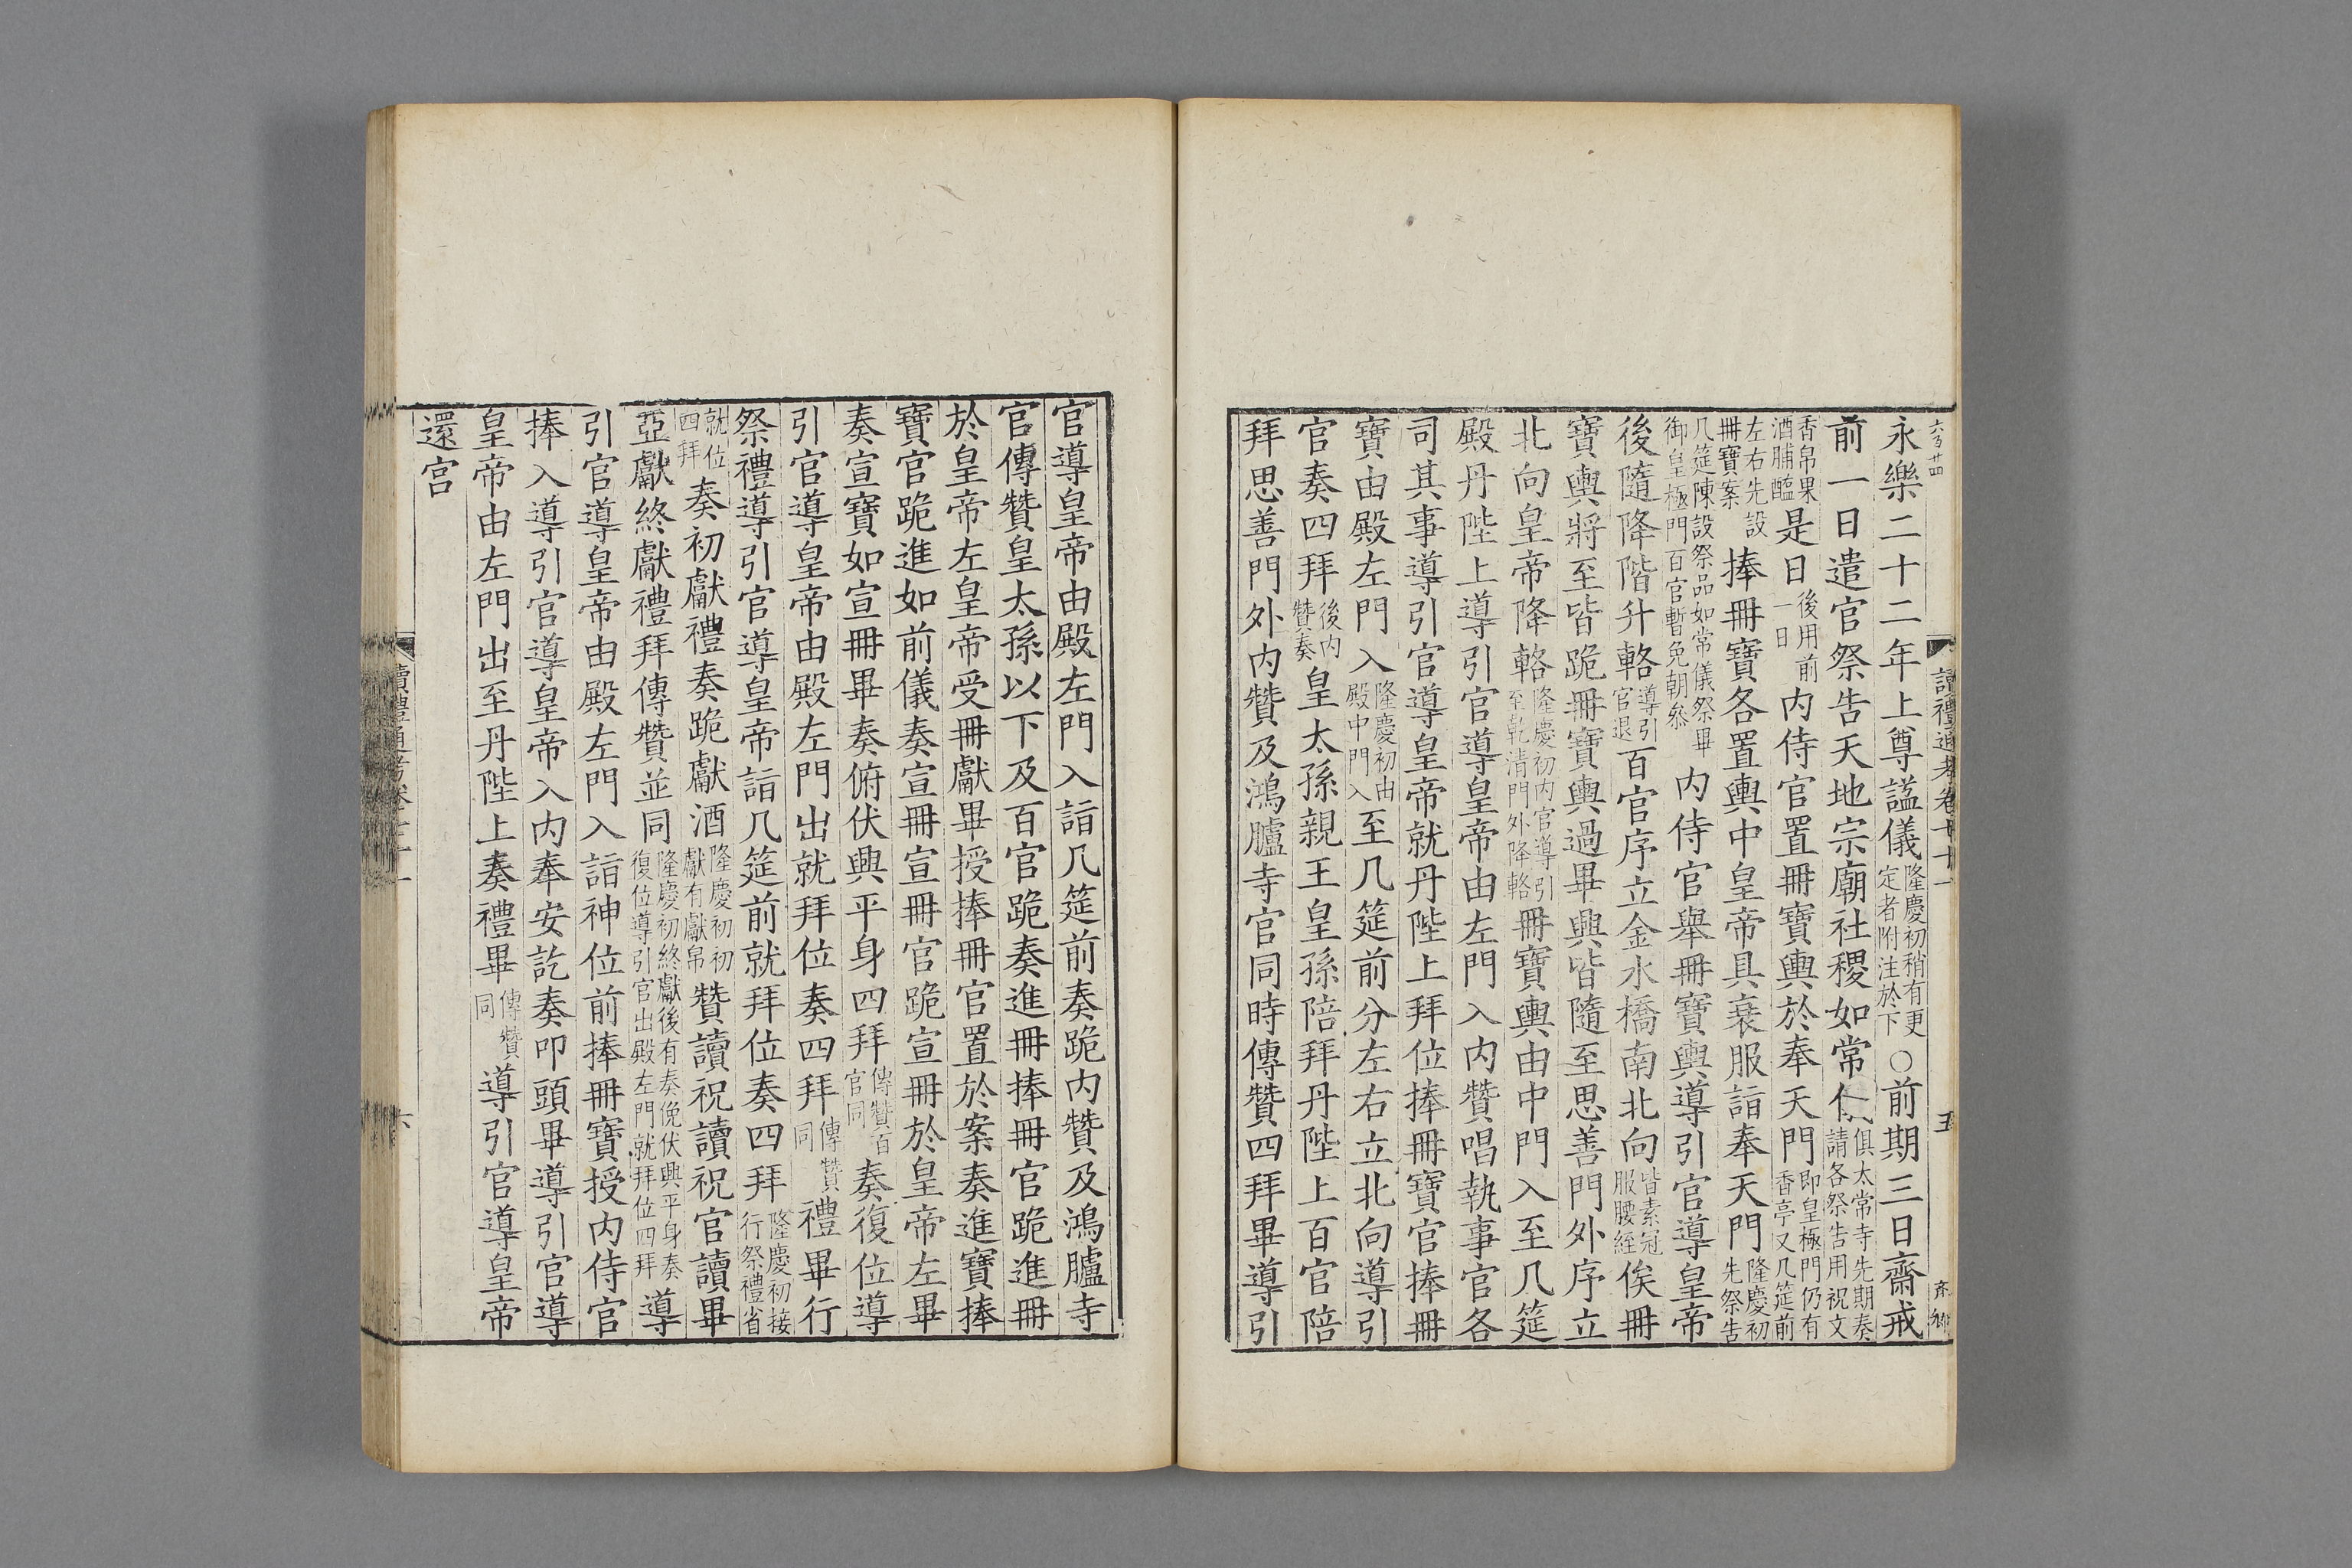 永樂二十二年上尊諡儀隆慶初稍有更定者附注於下○前期三日齋戒
前一日遣官祭告天地宗廟社稷如常俱太常寺先期奏請各祭告用祝文
香帛果酒脯醢是日後用前一日内侍官置冊寶輿於奉天門即皇極門仍有香亭又几筵前
左右先設冊寶案捧冊寶各置輿中皇帝具衰服詣奉天門隆慶初先祭告
几筵陳設祭品如常儀祭畢御皇極門百官暫免朝叅内侍官舉冊寶輿導引官導皇帝
後隨降階升輅導引官退百官序立金水橋南北向皆素冠服腰絰俟冊
寶輿將至皆跪冊寶輿過畢興皆隨至思善門外序立
北向皇帝降輅隆慶初内官導引至乾清門外降輅冊寶輿由中門入至几筵
殿丹陛上導引官導皇帝由左門入内贊唱執事官各
司其事導引官導皇帝就丹陛上拜位捧冊寶官捧冊
寶由殿左門入隆慶初由殿中門入至几筵前分左右立北向導引
官奏四拜後内贊奏皇太孫親王皇孫陪拜丹陛上百官陪
拜思善門外内贊及鴻臚寺官同時傳贊四拜畢導引
讀禮通考卷
五
官導皇帝由殿左門入詣几筵前奏跪内贊及鴻臚寺
官傳贊皇太孫以下及百官跪奏進冊捧冊官跪進冊
於皇帝左皇帝受冊獻畢授捧冊官置於案奏進寶捧
寶官跪進如前儀奏宣冊宣冊官跪宣冊於皇帝左畢
奏宣寶如宣冊畢奏俯伏興平身四拜傳贊百官同奏復位導
引官導皇帝由殿左門出就拜位奏四拜傳贊同禮畢行
祭禮導引官導皇帝詣几筵前就拜位奏四拜隆慶初接行祭禮省
就位四拜奏初獻禮奏跪獻酒隆慶初初獻有獻帛贊讀祝讀祝官讀畢
亞獻終獻禮拜傳贊並同隆慶初終獻後有奏俛伏興平身奏復位導引官出殿左門就拜位四拜導
引官導皇帝由殿左門入詣神位前捧冊寶授内侍官
捧入導引官導皇帝入内奉安訖奏叩頭畢導引官導
皇帝由左門出至丹陛上奏禮畢傳贊同導引官導皇帝
還宮
讀禮通考卷
六